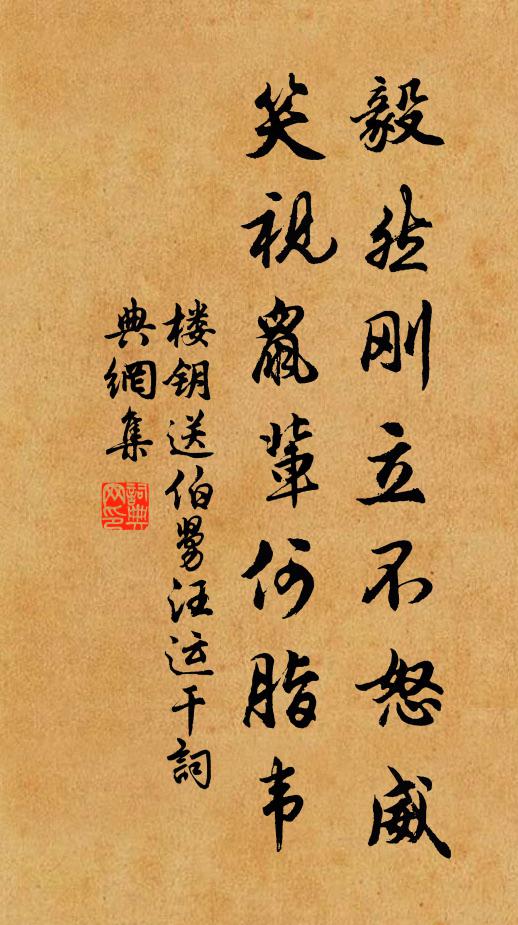 毅然刚立不怒威
笑视鼠辈何脂韦
楼钥送伯昜汪运干詞
典網集
詞典網印